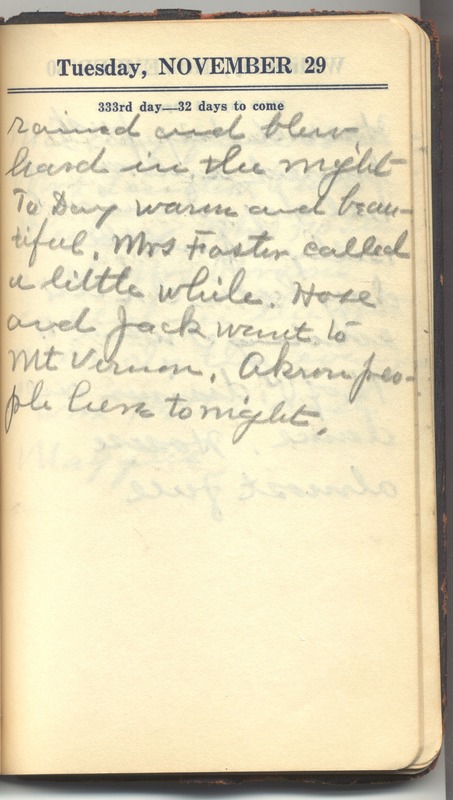 Tuesday, NOVEMBER 29
333rd day—32 days to come
rained and blew
hard in the night
To Day warm and beau-
tiful. Mrs Foster called
a little while. Hose
and Jack went to
Mt Vernon. Akron peo-
ple here tonight.
almost full